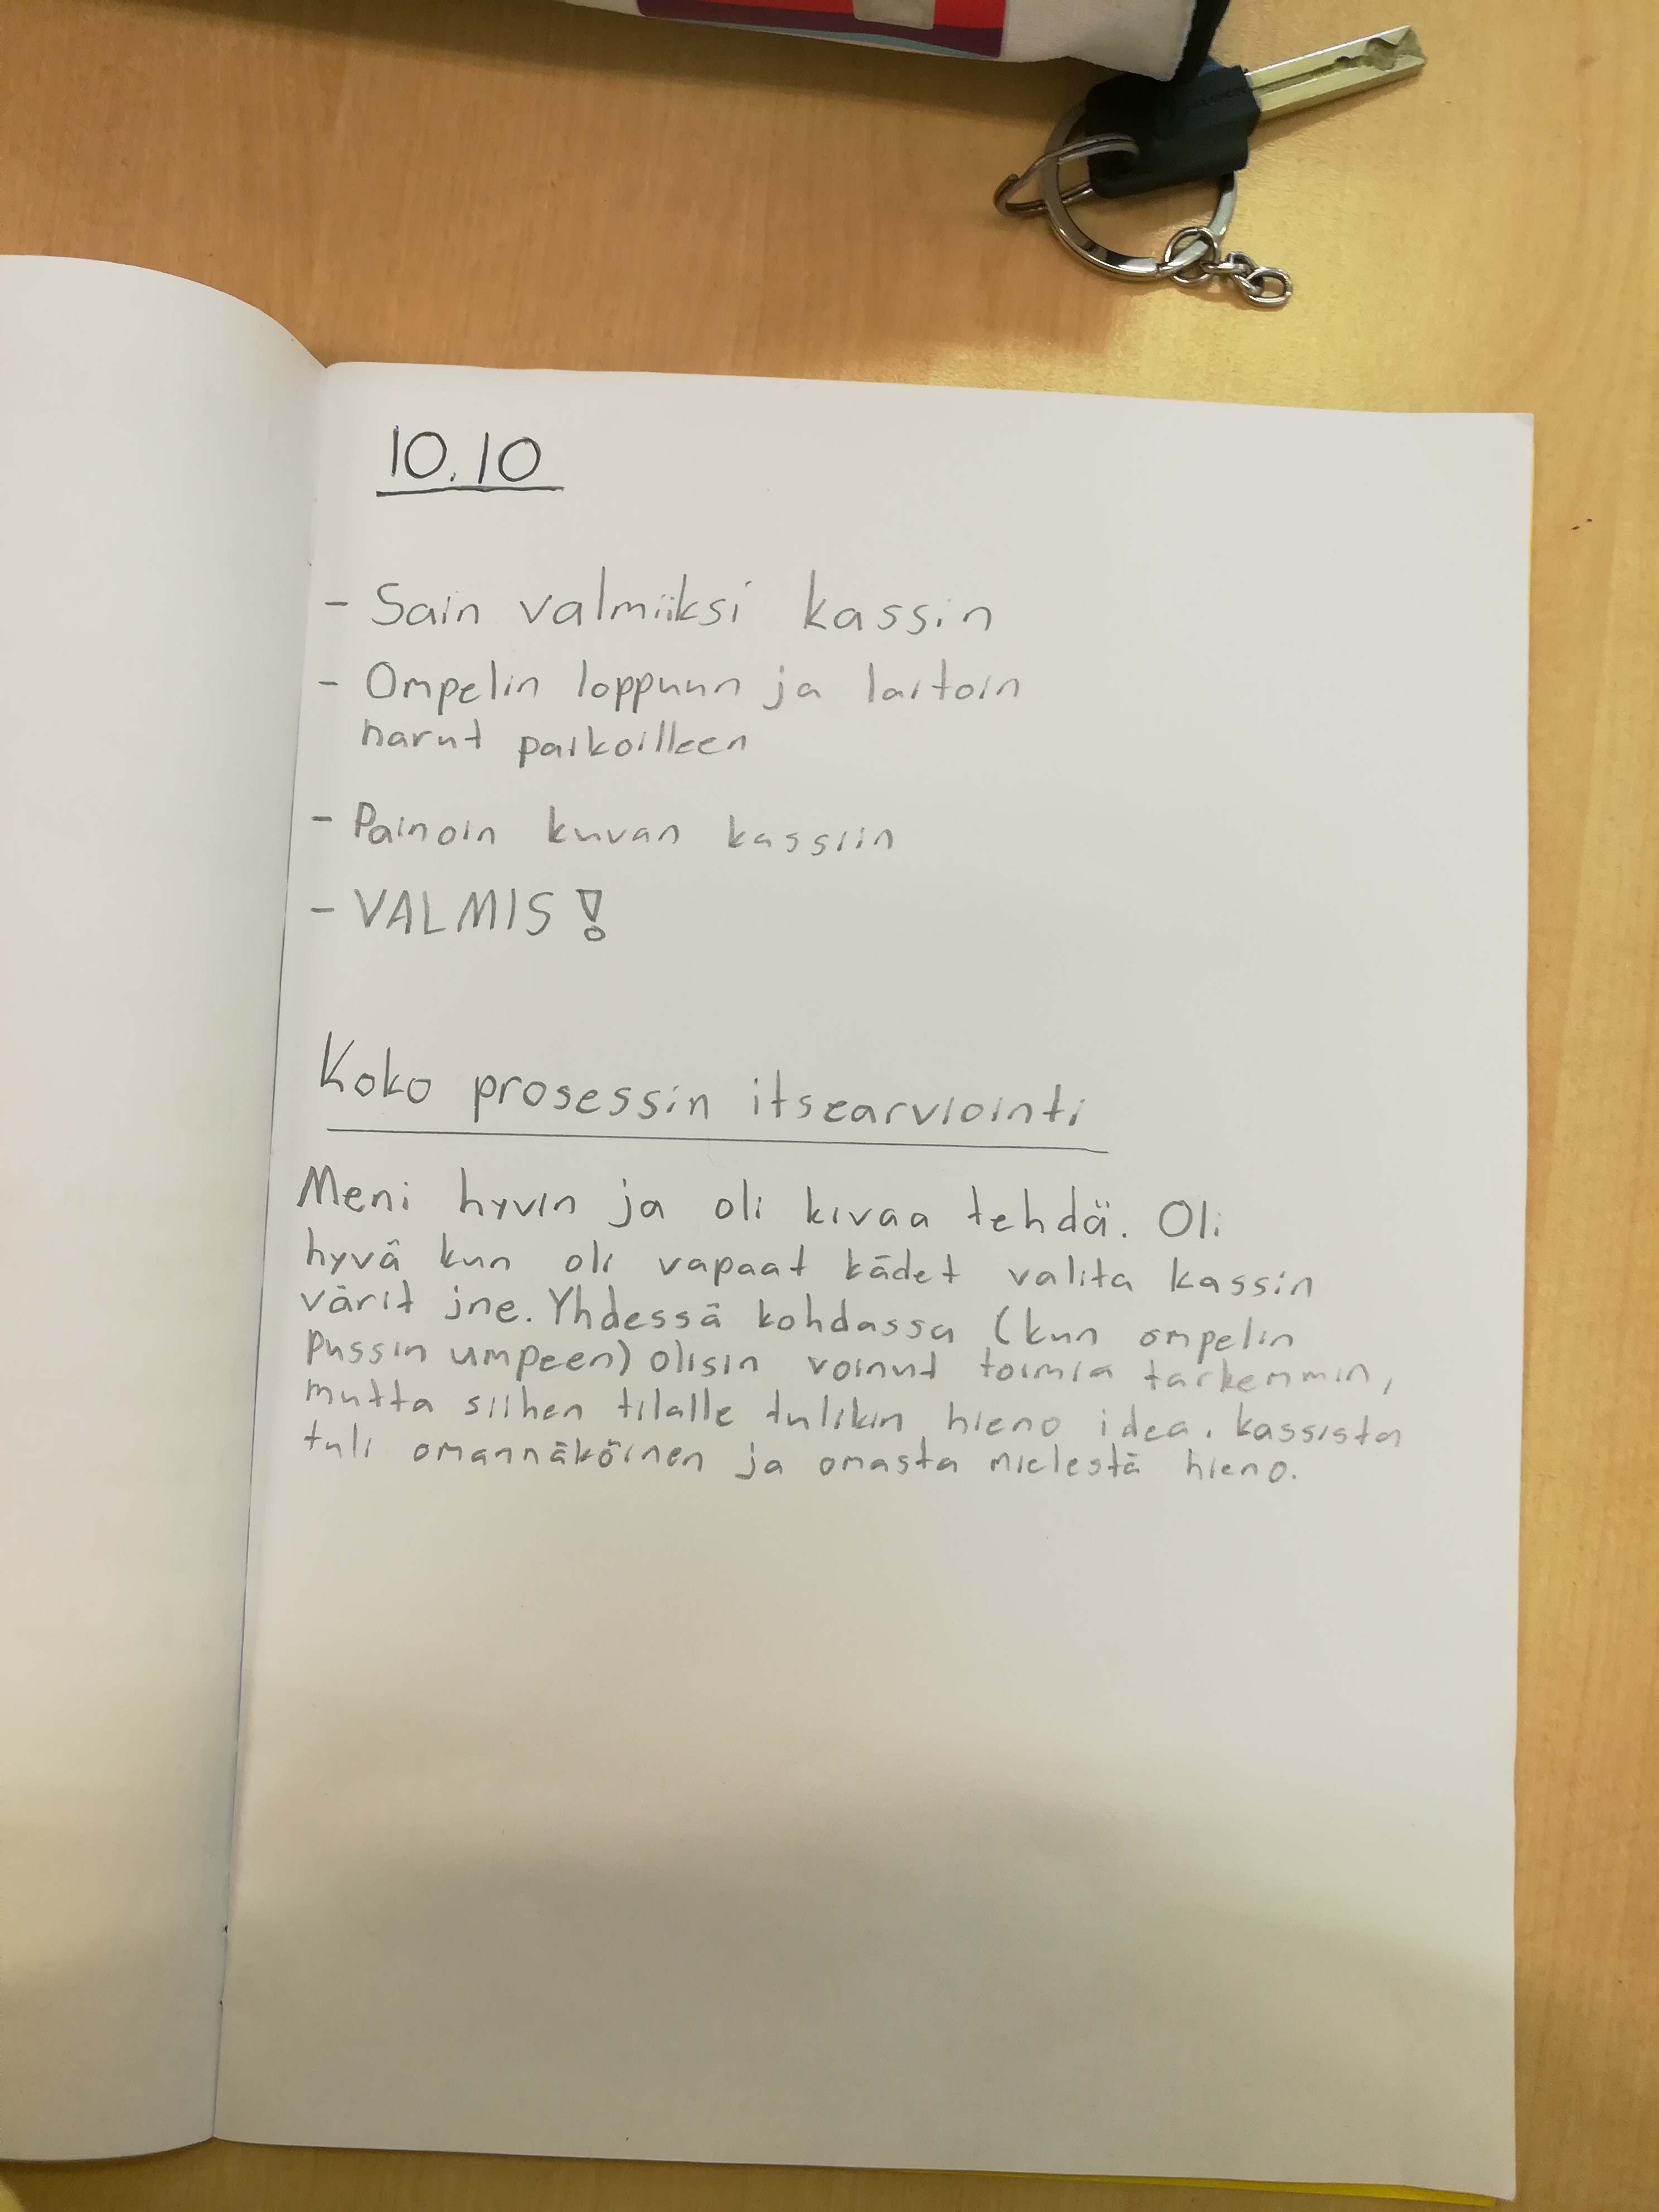 10.10
- Sain valmiiksi kassin
- Ompelin loppuun ja laitoin
narut paikoilleen
- Painoin kuvan kassiin
- VALMIS!
Koko prosessin itsearviointi
Meni hyvin ja oli kivaa tehdä. Oli
hyvä kun oli vapaat kädet valita kassin
värit jne. Yhdessä kohdassa (kun ompelin
pussin umpeen) olisin voinut toimia tarkemmin,
mutta siihen tilalle tulikin hieno idea. kassista
tuli omannäköinen ja omasta mielestä hieno.